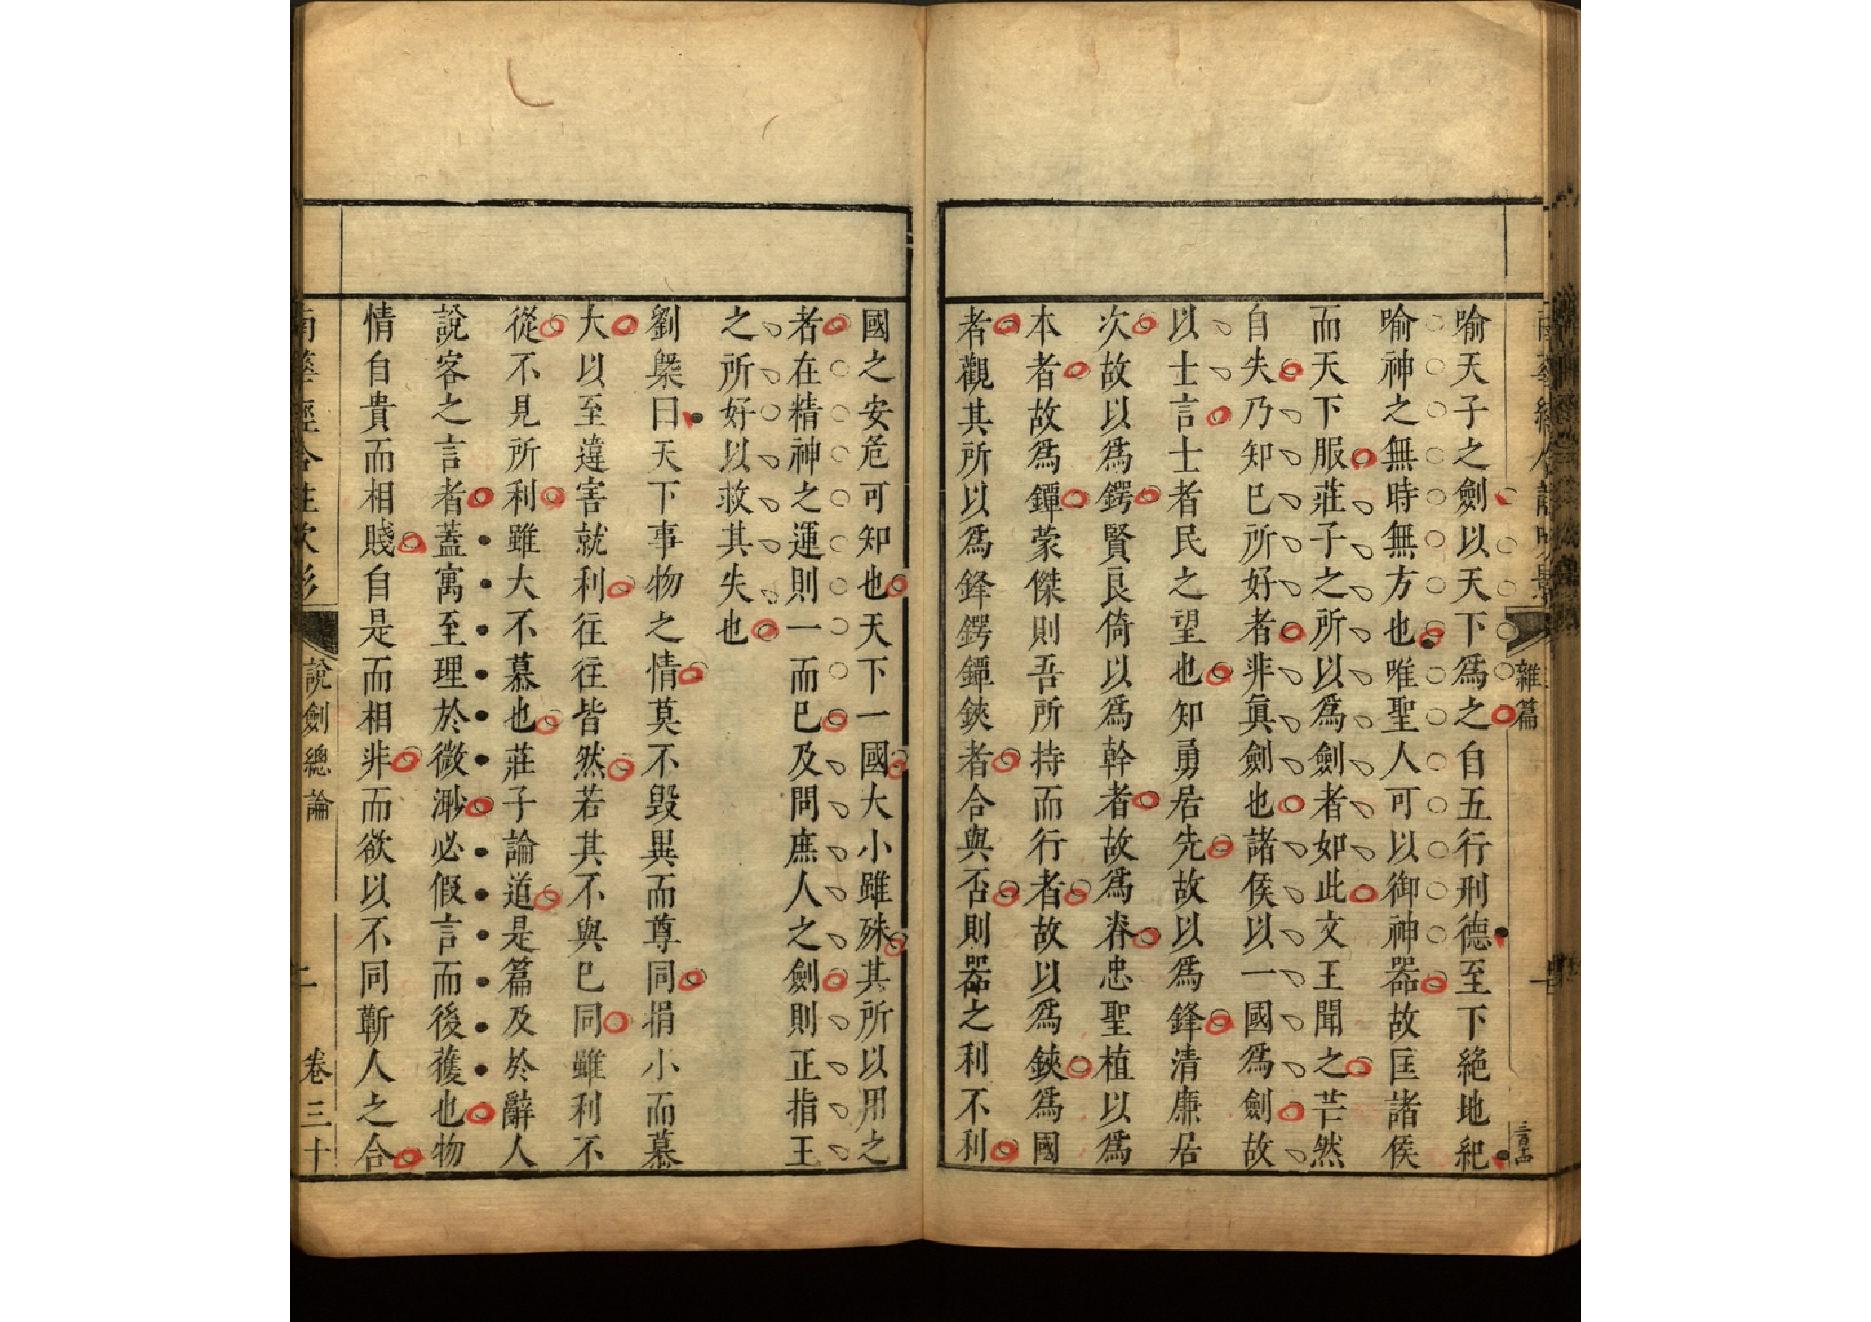 喻天子之劍以天下爲之自五行刑德至下絶地紀
喻神之無時無方也唯聖人可以御神器故匡諸侯
而天下服莊子之所以爲劍者如此文王聞之芒然
自失乃知已所好者非眞劍也諸侯以一國爲劍故
以士言士者民之望也知勇居先故以爲鋒清廉居
次故以爲鍔賢良倚以爲幹者故爲脊忠聖植以爲
本者故爲鐔豪傑則吾所持而行者故以爲鋏爲國
者觀其所以爲鋒鍔鐔鋏者合與否則器之利不利
國之安危可知也天下一國大小雖殊其所以用之
者在精神之運則一而已及問庶人之劍則正指王
之所好以救其失也
劉槩曰天下事物之情莫不毀異而尊同捐小而慕
大以至違害就利往往皆然若其不與已同雖利不
從不見所利雖大不慕也莊子論道是篇及於辭人
說客之言者蓋寓至理於微渺必假言而後獲也物
情自貴而相賤自是而相非而欲以不同蘄人之合
雜篇
說劍總論
二
卷三十